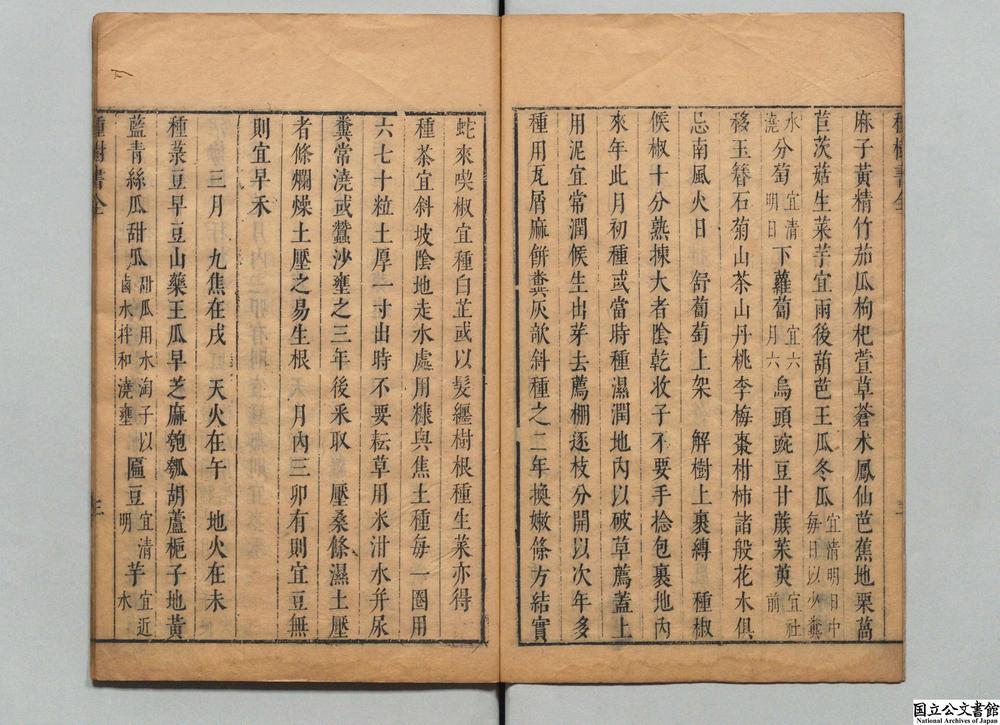 種樹書全
麻子黃精竹茄瓜枸杞萱草蒼朮鳳仙芭蕉地栗萵
苣茨菇生菜芋宜雨後葫芭王瓜冬瓜宜清明日中每日以少糞
水澆宜清明日分萄下蘿蔔宜六月六烏頭豌豆甘蔗茱萸宜社前
移玉簪石菊山茶山丹桃李梅棗柑柿諸般花木俱
忌南風火日 舒萄萄上架 解樹上裹縛 種椒
候椒十分熟揀大者陰乾收子不要手捻包裹地內
來年此月初種或當時種濕潤地內以破草薦蓋上
用泥宜常潤候生出芽去薦棚逐枝分開以次年多
種用瓦屑麻餅糞灰欹斜種之二年換嫩條方結實
三
蛇來喫椒宜種白芷或以髮纏樹根種生菜亦得
種茶宜斜坡陰地走水處用糠與焦土種每一圈用
六七十粒土厚一寸出時不要耘草用米泔水幷尿
糞常澆或蠶沙壅之三年後釆取 壓桑條濕土壓
者條爛燥土壓之易生根 月內三卯有則宜豆無
則宜早禾
三月 九焦在戌 天火在午 地火在未
種菉豆早豆山藥王瓜早芝麻匏瓠胡蘆梔子地黃
藍青絲瓜甜瓜甜瓜用水淘子以鹵水拌和澆壅匾豆宜清明芋宜近水
種樹書全
三
国立公文書館
National Archives of Japan